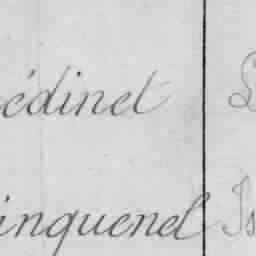 édinet
inquenel Is